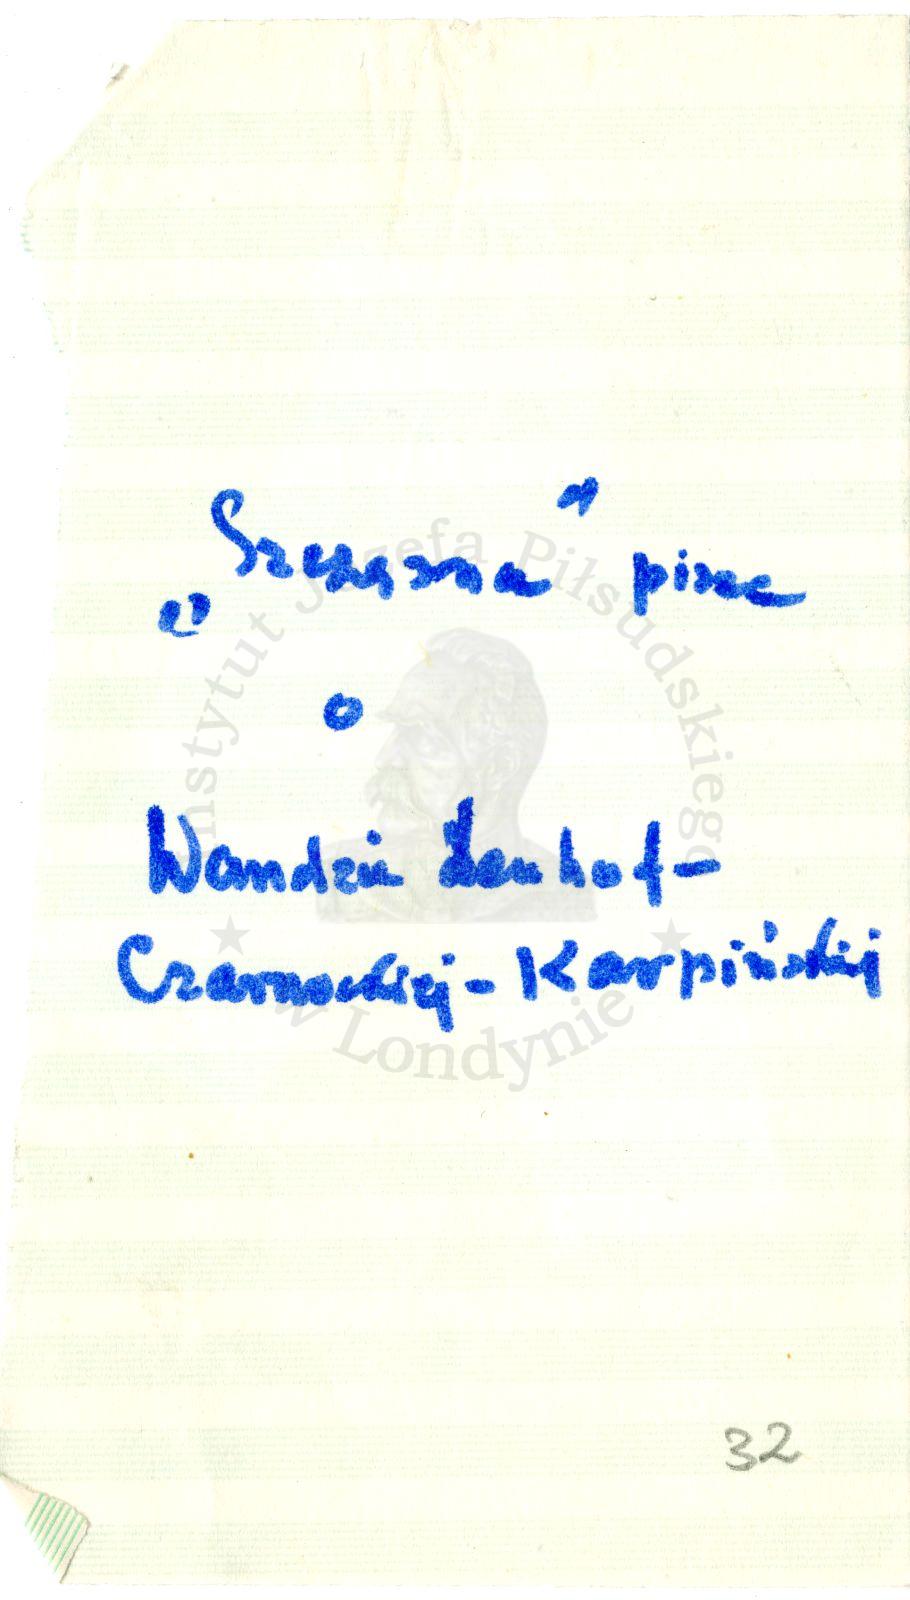 „Szczęsna" pisze
o
Wandzie Lenhof-
Czarnockiej-Karpińskiej
32
Instytut Józefa Piłsudskiego
w Londynie